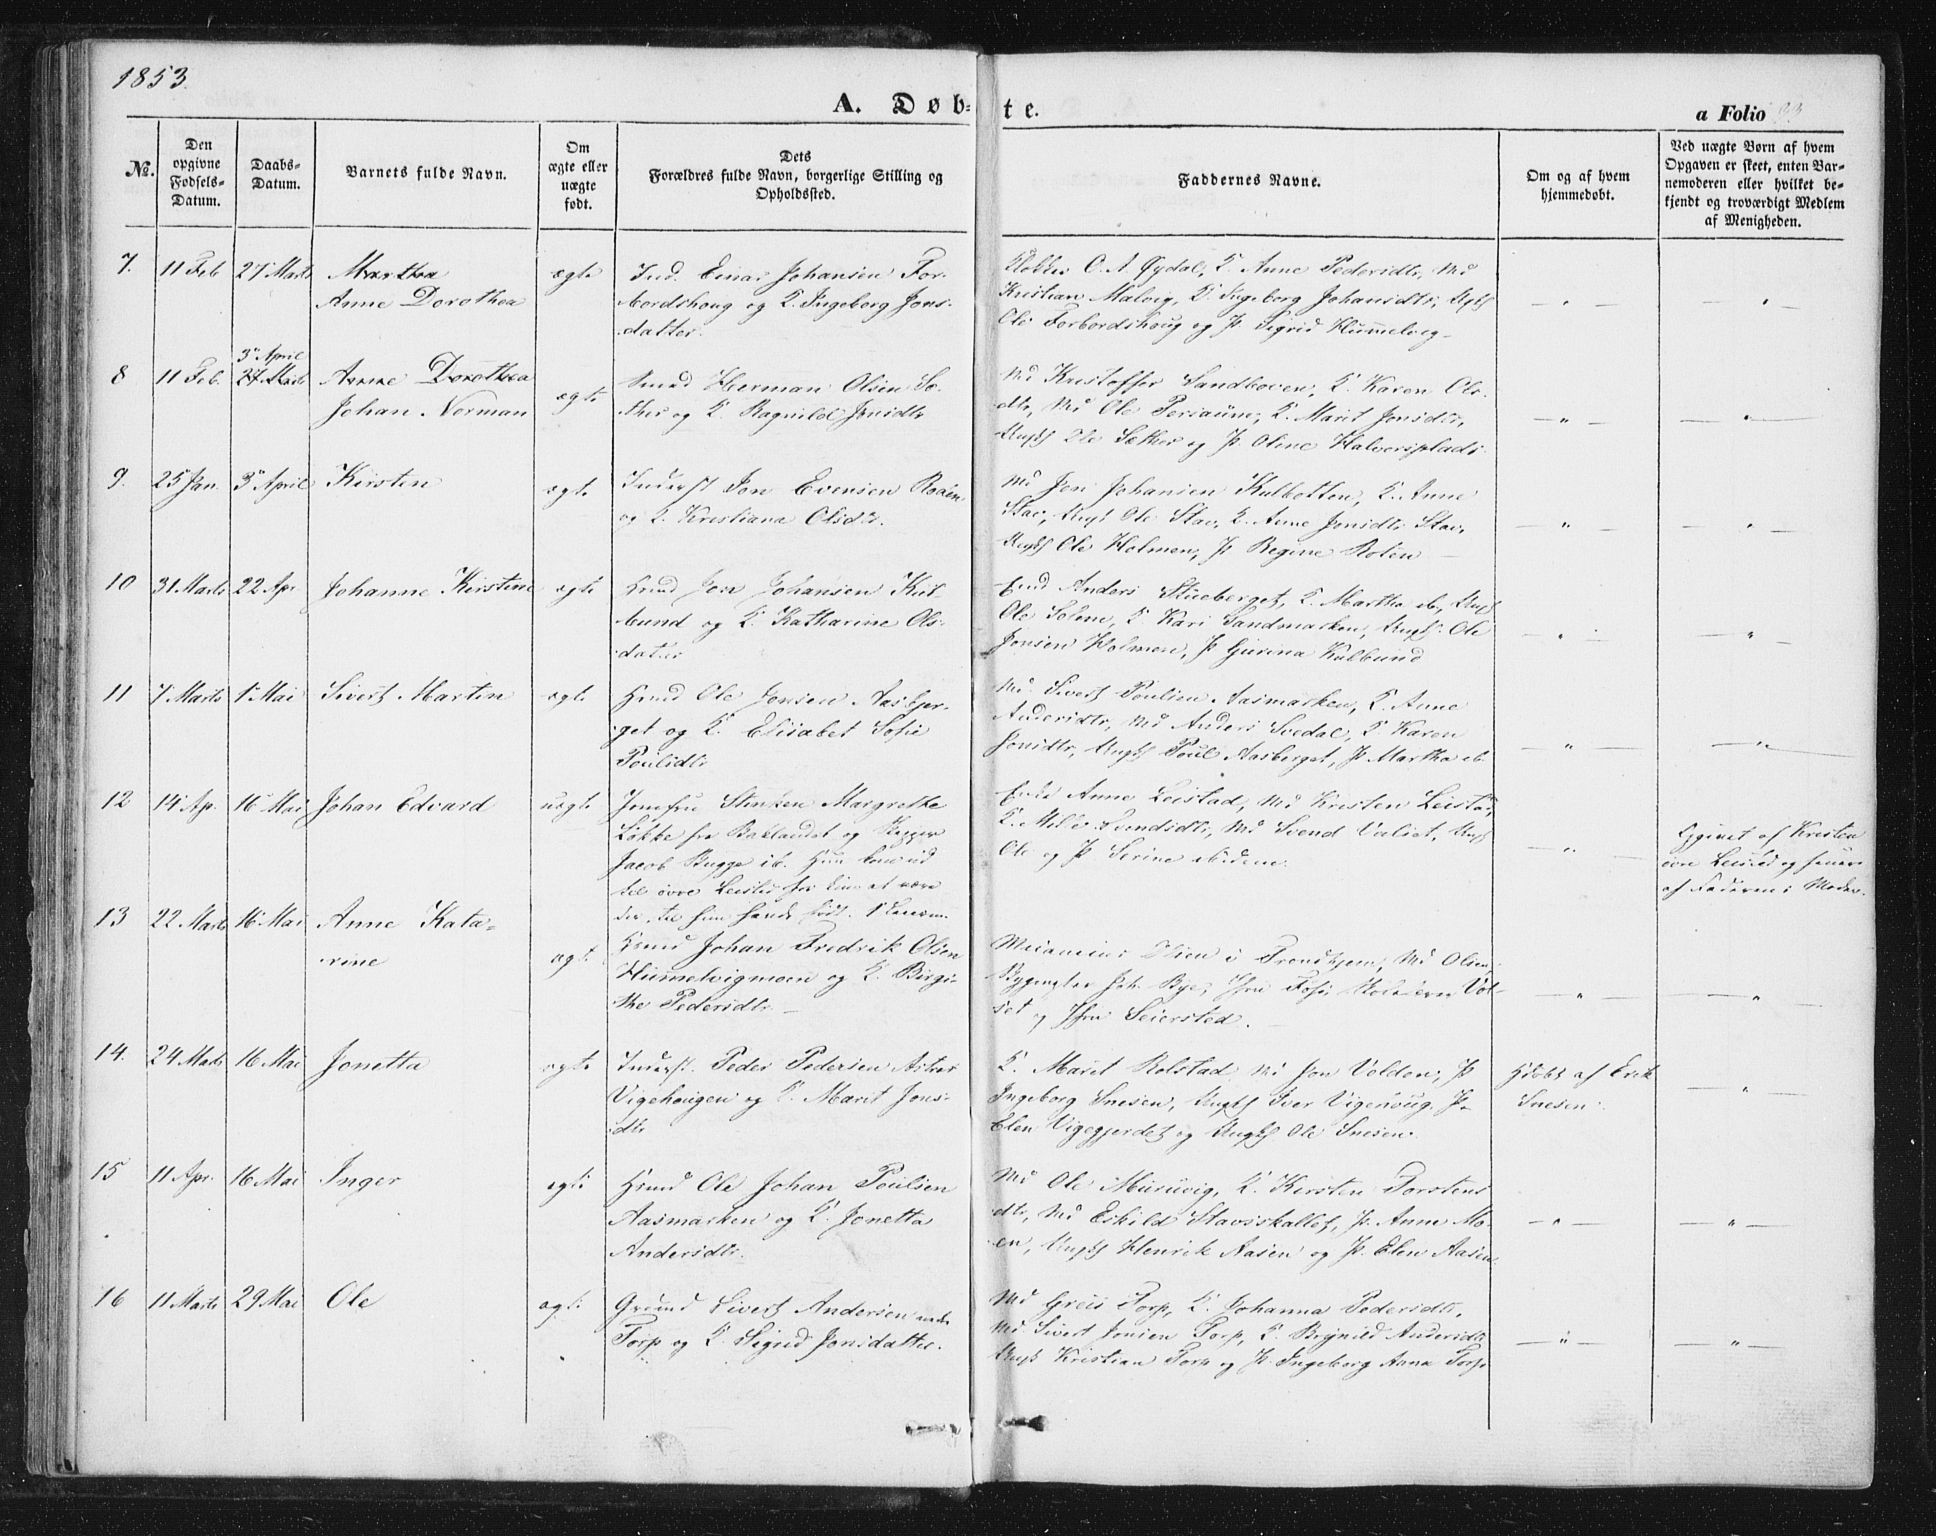 1853.
A. Døb-
te.
a Folio 33
No.
Den
opgivne
Fødsels-
Datum.
Daabs-
Datum.
Barnets fulde Navn.
Om
ægte eller
uægte
født.
Dets
Forældres fulde Navn, borgerlige Stilling og
Opholdssted.
Faddernes Navne.
Om og af hvem
hjemmedøbt.
Ved uægte Børn af hvem
Opgaven er skeet, enten Bar-
nemoderen eller hvilket be-
kjendt og troværdigt Medlem
af Menigheden.
7. 11 Feb 27 Marts Martha
Anne Dorothea
ægte
Ind. Einar Johansen For-
bordshoug og K. Ingeborg Jons-
datter.
Klokker O. A. Øydal, K. Anne Pedersdtr, Md
Kristian Malvig, K. Ingeborg Johansdtr, Ungk
Ole Forbordshoug og P. Sigrid Hummelvig
8 11 Feb. 3 April
27 Marts
Anne Dorothea
Johan Norman
ægte
Smed Herman Olsen Sæ-
ther og K. Ragnild Jonsdtr
Md Kristoffer Sandboen, K. Karen Ols-
dtr, Md Ole Periaune, K. Marit Jonsdtr,
Ungk Ole Sæther og P. Oline Halvorsplads
9. 25 Jan. 3 April Kirsten
ægte
Inderst Jon Evensen Rolen
og K. Kristiana Olsdtr.
Md Jon Johansen Kulbotten, K. Anne
Stav, Ungk Ole Stav, K. Anne Jonsdtr Stav,
Ungk Ole Holmen, P. Regine Rolen
10 31 Marts 22 Apr Johanne Kirstine
ægte
Hmd Jon Johansen Kul-
bund og K. Katharine Ols-
datter
Enkmd Anders Stueberget, K. Martha ib,
Ole Solem, K. Kari Sandmarken, Ungk Ole
Jonsen Holmen, P. Gurina Kulbund
11 7 Marts 1 Mai Sivert Martin
ægte
Hmd Ole Jonsen Aasber-
get og K. Elisabet Sofie
Poulsdtr
Md. Sivert Poulsen Aasmarken, K. Anne
Andersdtr, Md Anders Svedal, K. Karen
Jonsdtr, Ungk Poul Aasberget, P. Martha ib.
12 14 Ap. 16 Mai Johan Edvard
uægte
Jomfru Stinken Margrethe
Løkke fra Baklandet og
Jacob Bugge ib. Hun kom ud
til øvre Leistad for kun at være
der, til hun havde født.
Enke Anne Leistad, Md Kristen Leistad,
K. Svendsdtr, Md Svend Valset, Ungk
Ole og P. Serine ibidem.
Opgivet af Kristen
øvre Leistad og senere
af Faderen i Moder.
13 22 Marts 16 Mai Anne Kata-
rine
ægte
Hmd Johan Fredrik Olsen
Hummelvigmoen og K. Birgi-
the Pedersdtr.
Olsen i Trondhjem, Md Olsen,
Joh. Bye, Fru Foss,
og Fru Seiersted.
14. 24 Marts 16 Mai Jonetta
ægte
Inderst. Peder Pedersen Astner
Vigehougen og K. Marit Jons-
dtr
K. Marit Rolstad, Md Jon Volden, P.
Ingeborg Snesen, Ungk Iver Vigehoug, P.
Elen Vigegjerdet og Ungk Ole Snesen.
Hdøbt af Erik
Snesen.
15 11 Apr. 16 Mai Inger
ægte
Hmd Ole Johan Poulsen
Aasmarken og K. Jonetta
Andersdtr.
Md Ole Muruvig, K. Kirsten Torstens-
dtr, Md Eskild Stavsskallet, P. Anne Mo-
en, Ungk Henrik Aasen og P. Elen Aasen
16 11 Marts 29 Mai Ole
ægte
Grdmd Sivert Andersen nedre
Torp og K. Sigrid Jonsdatter.
Md Greis Torp, K. Johanna Pedersdtr,
Md. Sivert Jonsen Torp, K. Brynild Andersdtr
Ungk Kristian Torp og P. Ingeborg Anna Torp